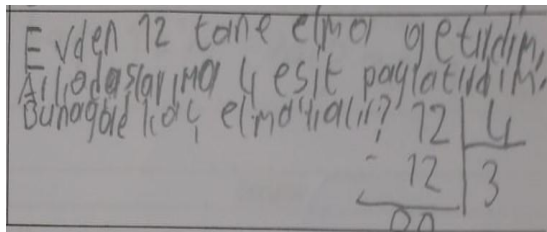 Evden 12 tane elma getirdim,
Arkadaşlarıma 4 eşit paylatırdım.
Bunagöre kaç elma kalır? 12 | 4
- 12 3
00